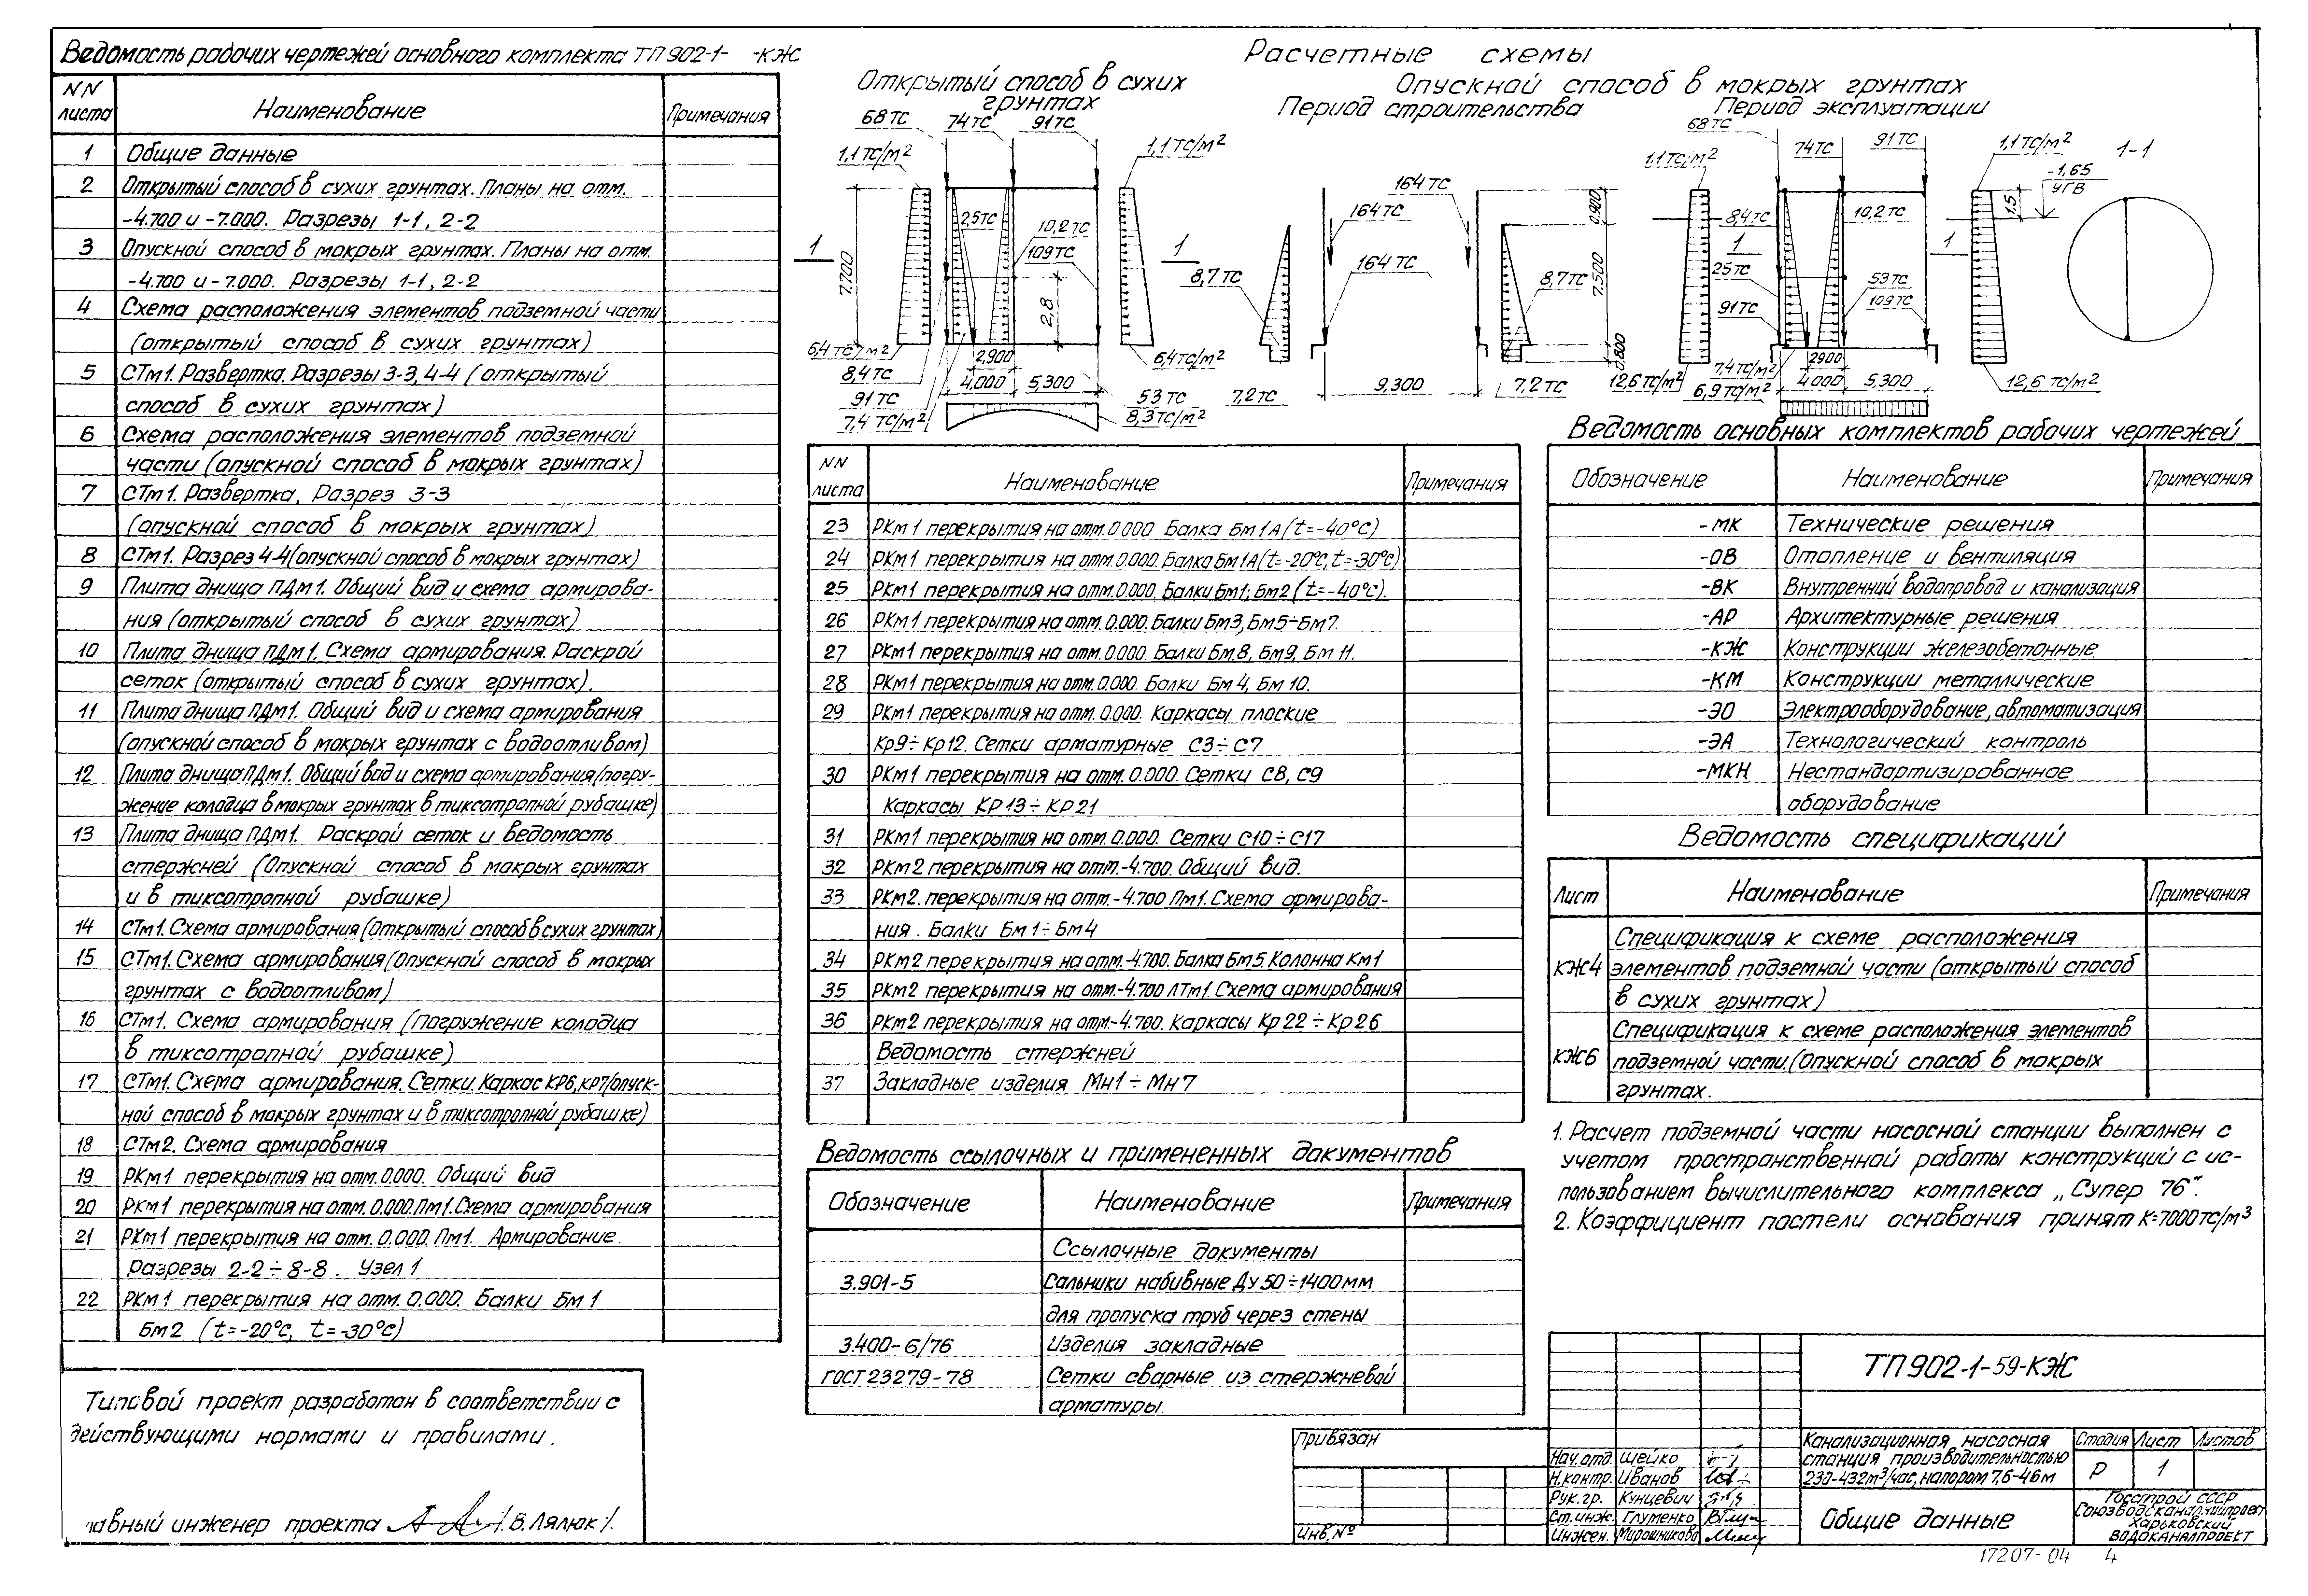 Ведомость рабочих чертежей основного комплекта ТП 902-1- -КЖ
NN листа Наименование Примечания
1 Общие данные
2 Открытый способ в сухих грунтах. Планы на отм.
-4.700 и -7.000. Разрезы 1-1, 2-2
3 Опускной способ в мокрых грунтах. Планы на отм.
-4.700 и -7.000. Разрезы 1-1, 2-2
4 Схема расположения элементов подземной части
(открытый способ в сухих грунтах)
5 СТм1. Развертка. Разрезы 3-3, 4-4 (открытый
способ в сухих грунтах)
6 Схема расположения элементов подземной
части (опускной способ в мокрых грунтах)
7 СТм1. Развертка, Разрез 3-3
(опускной способ в мокрых грунтах)
8 СТм1. Разрез 4-4 (опускной способ в мокрых грунтах)
9 Плита днища ПДм1. Общий вид и схема армирова-
ния (открытый способ в сухих грунтах)
10 Плита днища ПДм1. Схема армирования. Раскрой
сеток (открытый способ в сухих грунтах).
11 Плита днища ПДм1. Общий вид и схема армирования
(опускной способ в мокрых грунтах с водоотливом)
12 Плита днища ПДм1. Общий вид и схема армирования (погру-
жение колодца в мокрых грунтах в тиксотропной рубашке)
13 Плита днища ПДм1. Раскрой сеток и ведомость
стержней (Опускной способ в мокрых грунтах
и в тиксотропной рубашке)
14 СТм1. Схема армирования (Открытый способ в сухих грунтах)
15 СТм1. Схема армирования (Опускной способ в мокрых
грунтах с водоотливом)
16 СТм1. Схема армирования (Погружение колодца
в тиксотропной рубашке)
17 СТм1. Схема армирования. Сетки. Каркас КР6, КР7 (опуск-
ной способ в мокрых грунтах и в тиксотропной рубашке)
18 СТм2. Схема армирования
19 РКм1 перекрытия на отм. 0.000. Общий вид
20 РКм1 перекрытия на отм. 0.000. Пм1. Схема армирования
21 РКм1 перекрытия на отм. 0.000. Пм1. Армирование.
Разрезы 2-2÷8-8. Узел 1
22 РКм1 перекрытия на отм. 0.000. Балки Бм 1
Бм2 (t=-20°С, t=-30°С)
Типовой проект разработан в соответствии с
действующими нормами и правилами.
лавный инженер проекта /В. Лялюк/.
Расчетные схемы
Открытый способ в сухих
грунтах
68 ТС 74 ТС 91 ТС
1,1 ТС/м² 1,1 ТС/м²
2,5 ТС 10,2 ТС
109 ТС
1
1
7.700
2,8
6,4 ТС/м² 2.900 6,4 ТС/м²
8,4 ТС 4,000 5,300
91 ТС 53 ТС
7,4 ТС/м² 8,3 ТС/м²
Опускной способ в мокрых грунтах
Период строительства
164 ТС
164 ТС
164 ТС
8,7 ТС 8,7 ТС
0.900
7.500
0.800
7,2 ТС 9,300 7,2 ТС
Период эксплуатации
68 ТС 74 ТС 91 ТС
1,1 ТС/м² 1,1 ТС/м²
-1,65
УГВ
1,5
8,4 ТС 10,2 ТС
1
1
25 ТС 53 ТС
91 ТС 109 ТС
12,6 ТС/м² 7,4 ТС/м² 2900 12,6 ТС/м²
6,9 ТС/м² 4000 5,300
1-1
NN листа Наименование Примечания
23 РКм1 перекрытия на отм. 0.000 Балка Бм 1А (t=-40°С)
24 РКм1 перекрытия на отм. 0.000. Балка Бм 1А (t=-20°С, t=-30°С)
25 РКм1 перекрытия на отм. 0.000. Балки Бм1; Бм2 (t=-40°С).
26 РКм1 перекрытия на отм. 0.000. Балки Бм3, Бм5÷Бм7.
27 РКм1 перекрытия на отм. 0.000. Балки Бм.8, Бм9, Бм 11.
28 РКм1 перекрытия на отм. 0.000. Балки Бм 4, Бм 10.
29 РКм1 перекрытия на отм. 0.000. Каркасы плоские
Кр9÷Кр12. Сетки арматурные С3÷С7
30 РКм1 перекрытия на отм. 0.000. Сетки С8, С9
Каркасы КР13÷КР21
31 РКм1 перекрытия на отм. 0.000. Сетки С10÷С17
32 РКм2 перекрытия на отм. -4.700. Общий вид.
33 РКм2. перекрытия на отм. -4.700 Пм1. Схема армирова-
ния. Балки Бм 1÷Бм4
34 РКм2 перекрытия на отм. -4.700. Балка Бм5. Колонна Км1
35 РКм2 перекрытия на отм. -4.700 ЛТм1. Схема армирования
36 РКм2 перекрытия на отм. -4.700. Каркасы Кр 22÷Кр 26
Ведомость стержней
37 Закладные изделия Мн1÷Мн7
Ведомость ссылочных и примененных документов
Обозначение Наименование Примечания
Ссылочные документы
3.901-5 Сальники набивные Ду 50÷1400 мм
для пропуска труб через стены
3.400-6/76 Изделия закладные
ГОСТ 23279-78 Сетки сварные из стержневой
арматуры.
Ведомость основных комплектов рабочих чертежей
Обозначение Наименование Примечания
-МК Технические решения
-ОВ Отопление и вентиляция
-ВК Внутренний водопровод и канализация
-АР Архитектурные решения
-КЖ Конструкции железобетонные.
-КМ Конструкции металлические
-ЭО Электрооборудование, автоматизация
-ЭА Технологический контроль
-МКН Нестандартизированное
оборудование
Ведомость спецификаций
Лист Наименование Примечания
КЖ4 Спецификация к схеме расположения
элементов подземной части (открытый способ
в сухих грунтах)
КЖ6 Спецификация к схеме расположения элементов
подземной части. (Опускной способ в мокрых
грунтах.
1. Расчет подземной части насосной станции выполнен с
учетом пространственной работы конструкций с ис-
пользованием вычислительного комплекса „Супер 76“.
2. Коэффициент постели основания принят К=7000 ТС/м³
ТП 902-1-59-КЖ
Привязан
Инв. №
Нач. отд. Шейко
Н. контр. Иванов
Рук. гр. Кунцевич
Ст. инж. Глуменко
Инжен. Мирошникова
Канализационная насосная
станция производительностью
230-432 м³/час, напором 7,6-46 м
Стадия Лист Листов
Р 1
Общие данные
Госстрой СССР
Союзводоканалниипроект
Харьковский
ВОДОКАНАЛПРОЕКТ
17207-04 4